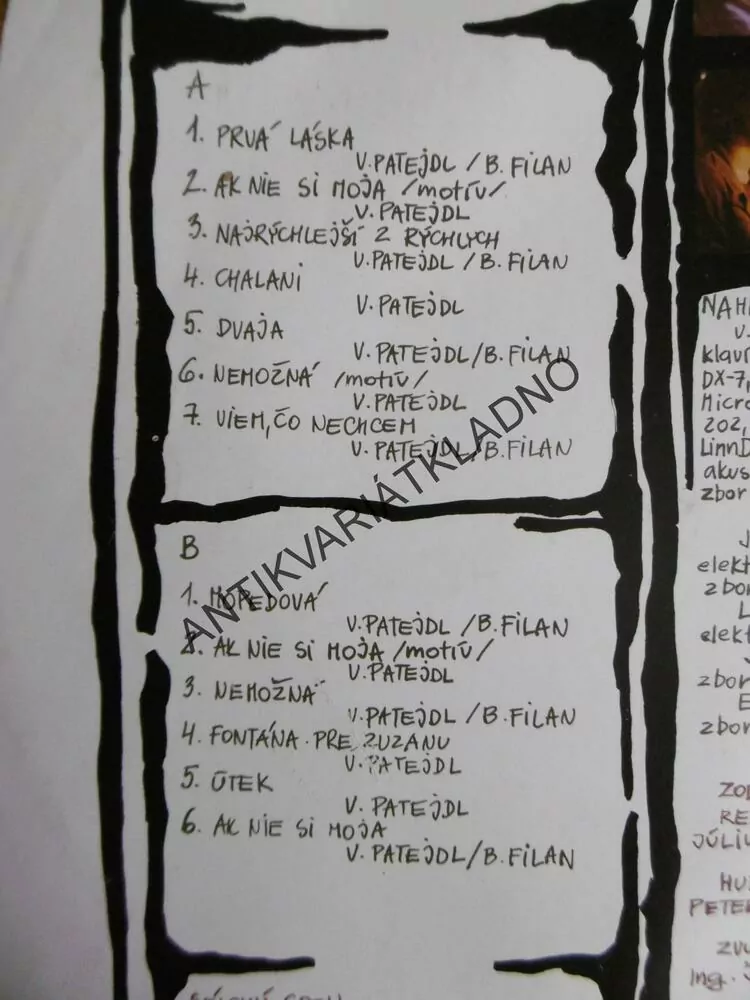 A
1. PRVÁ LÁSKA
V. PATEJDL / B. FILAN
2. AK NIE SI MOJA /motív/
V. PATEJDL
3. NAJRÝCHLEJŠÍ Z RÝCHLYCH
V. PATEJDL / B. FILAN
4. CHALANI
V. PATEJDL
5. DVAJA
V. PATEJDL / B. FILAN
6. NEMOŽNÁ /motív/
V. PATEJDL
7. VIEM, ČO NECHCEM
V. PATEJDL / B. FILAN
B
1. MOPEDOVÁ
V. PATEJDL / B. FILAN
2. AK NIE SI MOJA /motív/
V. PATEJDL
3. NEMOŽNÁ
V. PATEJDL / B. FILAN
4. FONTÁNA PRE ZUZANU
V. PATEJDL
5. ÚTEK
V. PATEJDL
6. AK NIE SI MOJA
V. PATEJDL / B. FILAN
ANTIKVARIÁTKLADNO
NAH
V.
klav
DX-7,
Micro
202,
LinnD
akus
zbor
J
elekt
zbo
L
elekt
zbor
E
zbor
ZO
RE
JÚLIU
HU
PETE
ZVU
Ing.